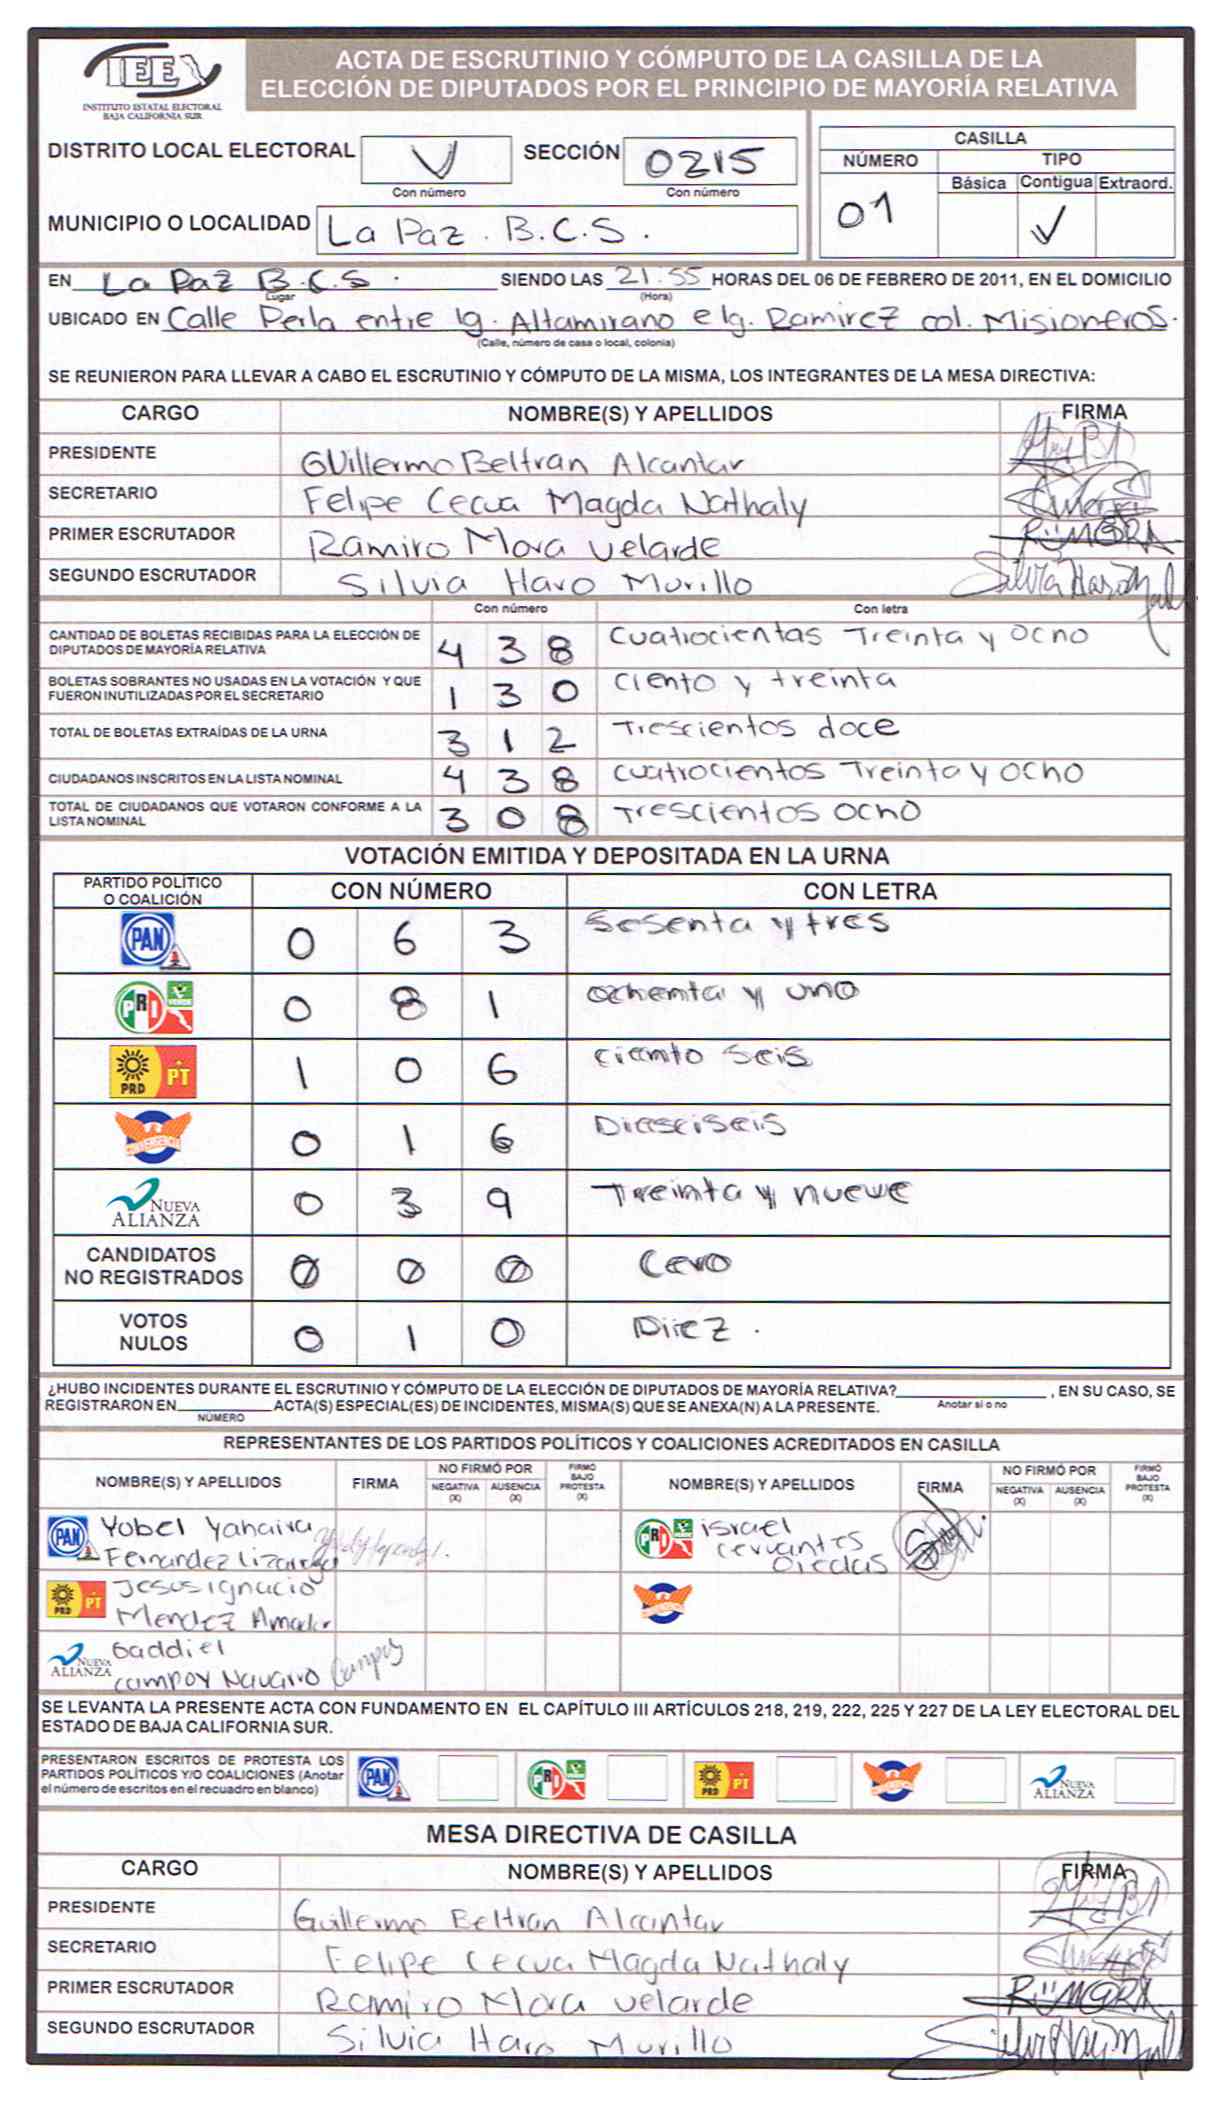 IEE
INSTITUTO ESTATAL ELECTORAL
BAJA CALIFORNIA SUR
ACTA DE ESCRUTINIO Y CÓMPUTO DE LA CASILLA DE LA
ELECCIÓN DE DIPUTADOS POR EL PRINCIPIO DE MAYORÍA RELATIVA
DISTRITO LOCAL ELECTORAL V SECCIÓN 0215
Con número Con número
MUNICIPIO O LOCALIDAD La Paz. B.C.S.
CASILLA
NÚMERO TIPO
Básica Contigua Extraord.
01 ✓
EN La Paz B.C.S. SIENDO LAS 21:55 HORAS DEL 06 DE FEBRERO DE 2011, EN EL DOMICILIO
Lugar (Hora)
UBICADO EN Calle Perla entre Ig. Altamirano e Ig. Ramirez col. Misioneros.
(Calle, número de casa o local, colonia)
SE REUNIERON PARA LLEVAR A CABO EL ESCRUTINIO Y CÓMPUTO DE LA MISMA, LOS INTEGRANTES DE LA MESA DIRECTIVA:
CARGO NOMBRE(S) Y APELLIDOS FIRMA
PRESIDENTE Guillermo Beltran Alcantar
SECRETARIO Felipe Cecua Magda Nathaly
PRIMER ESCRUTADOR Ramiro Mora Velarde RiiMORA
SEGUNDO ESCRUTADOR Silvia Haro Murillo
Con número Con letra
CANTIDAD DE BOLETAS RECIBIDAS PARA LA ELECCIÓN DE
DIPUTADOS DE MAYORÍA RELATIVA 4 3 8 Cuatrocientas Treinta y ocho
BOLETAS SOBRANTES NO USADAS EN LA VOTACIÓN Y QUE
FUERON INUTILIZADAS POR EL SECRETARIO 1 3 0 ciento y treinta
TOTAL DE BOLETAS EXTRAÍDAS DE LA URNA 3 1 2 Trescientos doce
CIUDADANOS INSCRITOS EN LA LISTA NOMINAL 4 3 8 cuatrocientos Treinta y ocho
TOTAL DE CIUDADANOS QUE VOTARON CONFORME A LA
LISTA NOMINAL 3 0 8 Trescientos ocho
VOTACIÓN EMITIDA Y DEPOSITADA EN LA URNA
PARTIDO POLÍTICO
O COALICIÓN CON NÚMERO CON LETRA
PAN 0 6 3 Sesenta y tres
PRI VERDE 0 8 1 ochenta y uno
PRD PT 1 0 6 ciento seis
CONVERGENCIA 0 1 6 Dieseiseis
NUEVA
ALIANZA 0 3 9 Treinta y nueve
CANDIDATOS
NO REGISTRADOS 0 0 0 Cero
VOTOS
NULOS 0 1 0 Diez.
¿HUBO INCIDENTES DURANTE EL ESCRUTINIO Y CÓMPUTO DE LA ELECCIÓN DE DIPUTADOS DE MAYORÍA RELATIVA? , EN SU CASO, SE
Anotar si o no
REGISTRARON EN ACTA(S) ESPECIAL(ES) DE INCIDENTES, MISMA(S) QUE SE ANEXA(N) A LA PRESENTE.
NÚMERO
REPRESENTANTES DE LOS PARTIDOS POLÍTICOS Y COALICIONES ACREDITADOS EN CASILLA
NOMBRE(S) Y APELLIDOS FIRMA NO FIRMÓ POR NEGATIVA (X) AUSENCIA (X) FIRMÓ BAJO PROTESTA (X) NOMBRE(S) Y APELLIDOS FIRMA NO FIRMÓ POR NEGATIVA (X) AUSENCIA (X) FIRMÓ BAJO PROTESTA (X)
PAN Yobel Yahaira
Fernandez Lizarraga
PRI israel
cervantes
PRD PT Jesus ignacio
Mendez Amador
NUEVA
ALIANZA Gaddiel
campoy Navarro Campoy
SE LEVANTA LA PRESENTE ACTA CON FUNDAMENTO EN EL CAPÍTULO III ARTÍCULOS 218, 219, 222, 225 Y 227 DE LA LEY ELECTORAL DEL
ESTADO DE BAJA CALIFORNIA SUR.
PRESENTARON ESCRITOS DE PROTESTA LOS
PARTIDOS POLÍTICOS Y/O COALICIONES (Anotar
el número de escritos en el recuadro en blanco)
PAN PRI PRD PT NUEVA ALIANZA
MESA DIRECTIVA DE CASILLA
CARGO NOMBRE(S) Y APELLIDOS FIRMA
PRESIDENTE Guillermo Beltran Alcantar
SECRETARIO Felipe Cecua Magda Nathaly
PRIMER ESCRUTADOR Ramiro Mora Velarde RiiMORA
SEGUNDO ESCRUTADOR Silvia Haro Murillo